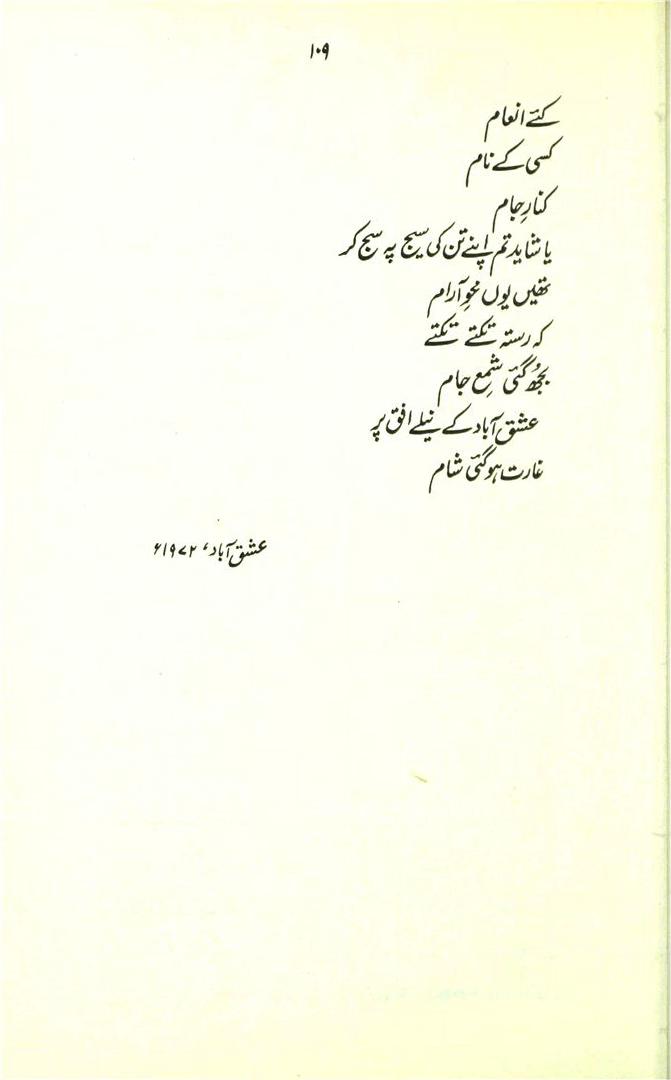 ۱۰۹
کئے انعام
کسی کے نام
کنارِ جام
یا شاید تم اپنے تن کی سیج پہ سج کر
تھیں یوں محوِ آرام
کہ رستہ تکتے تکتے
بجھ گئی شمعِ جام
عشق آباد کے نیلے افق پر
غارت ہو گئی شام
عشق آباد، ۱۹۷۲ء